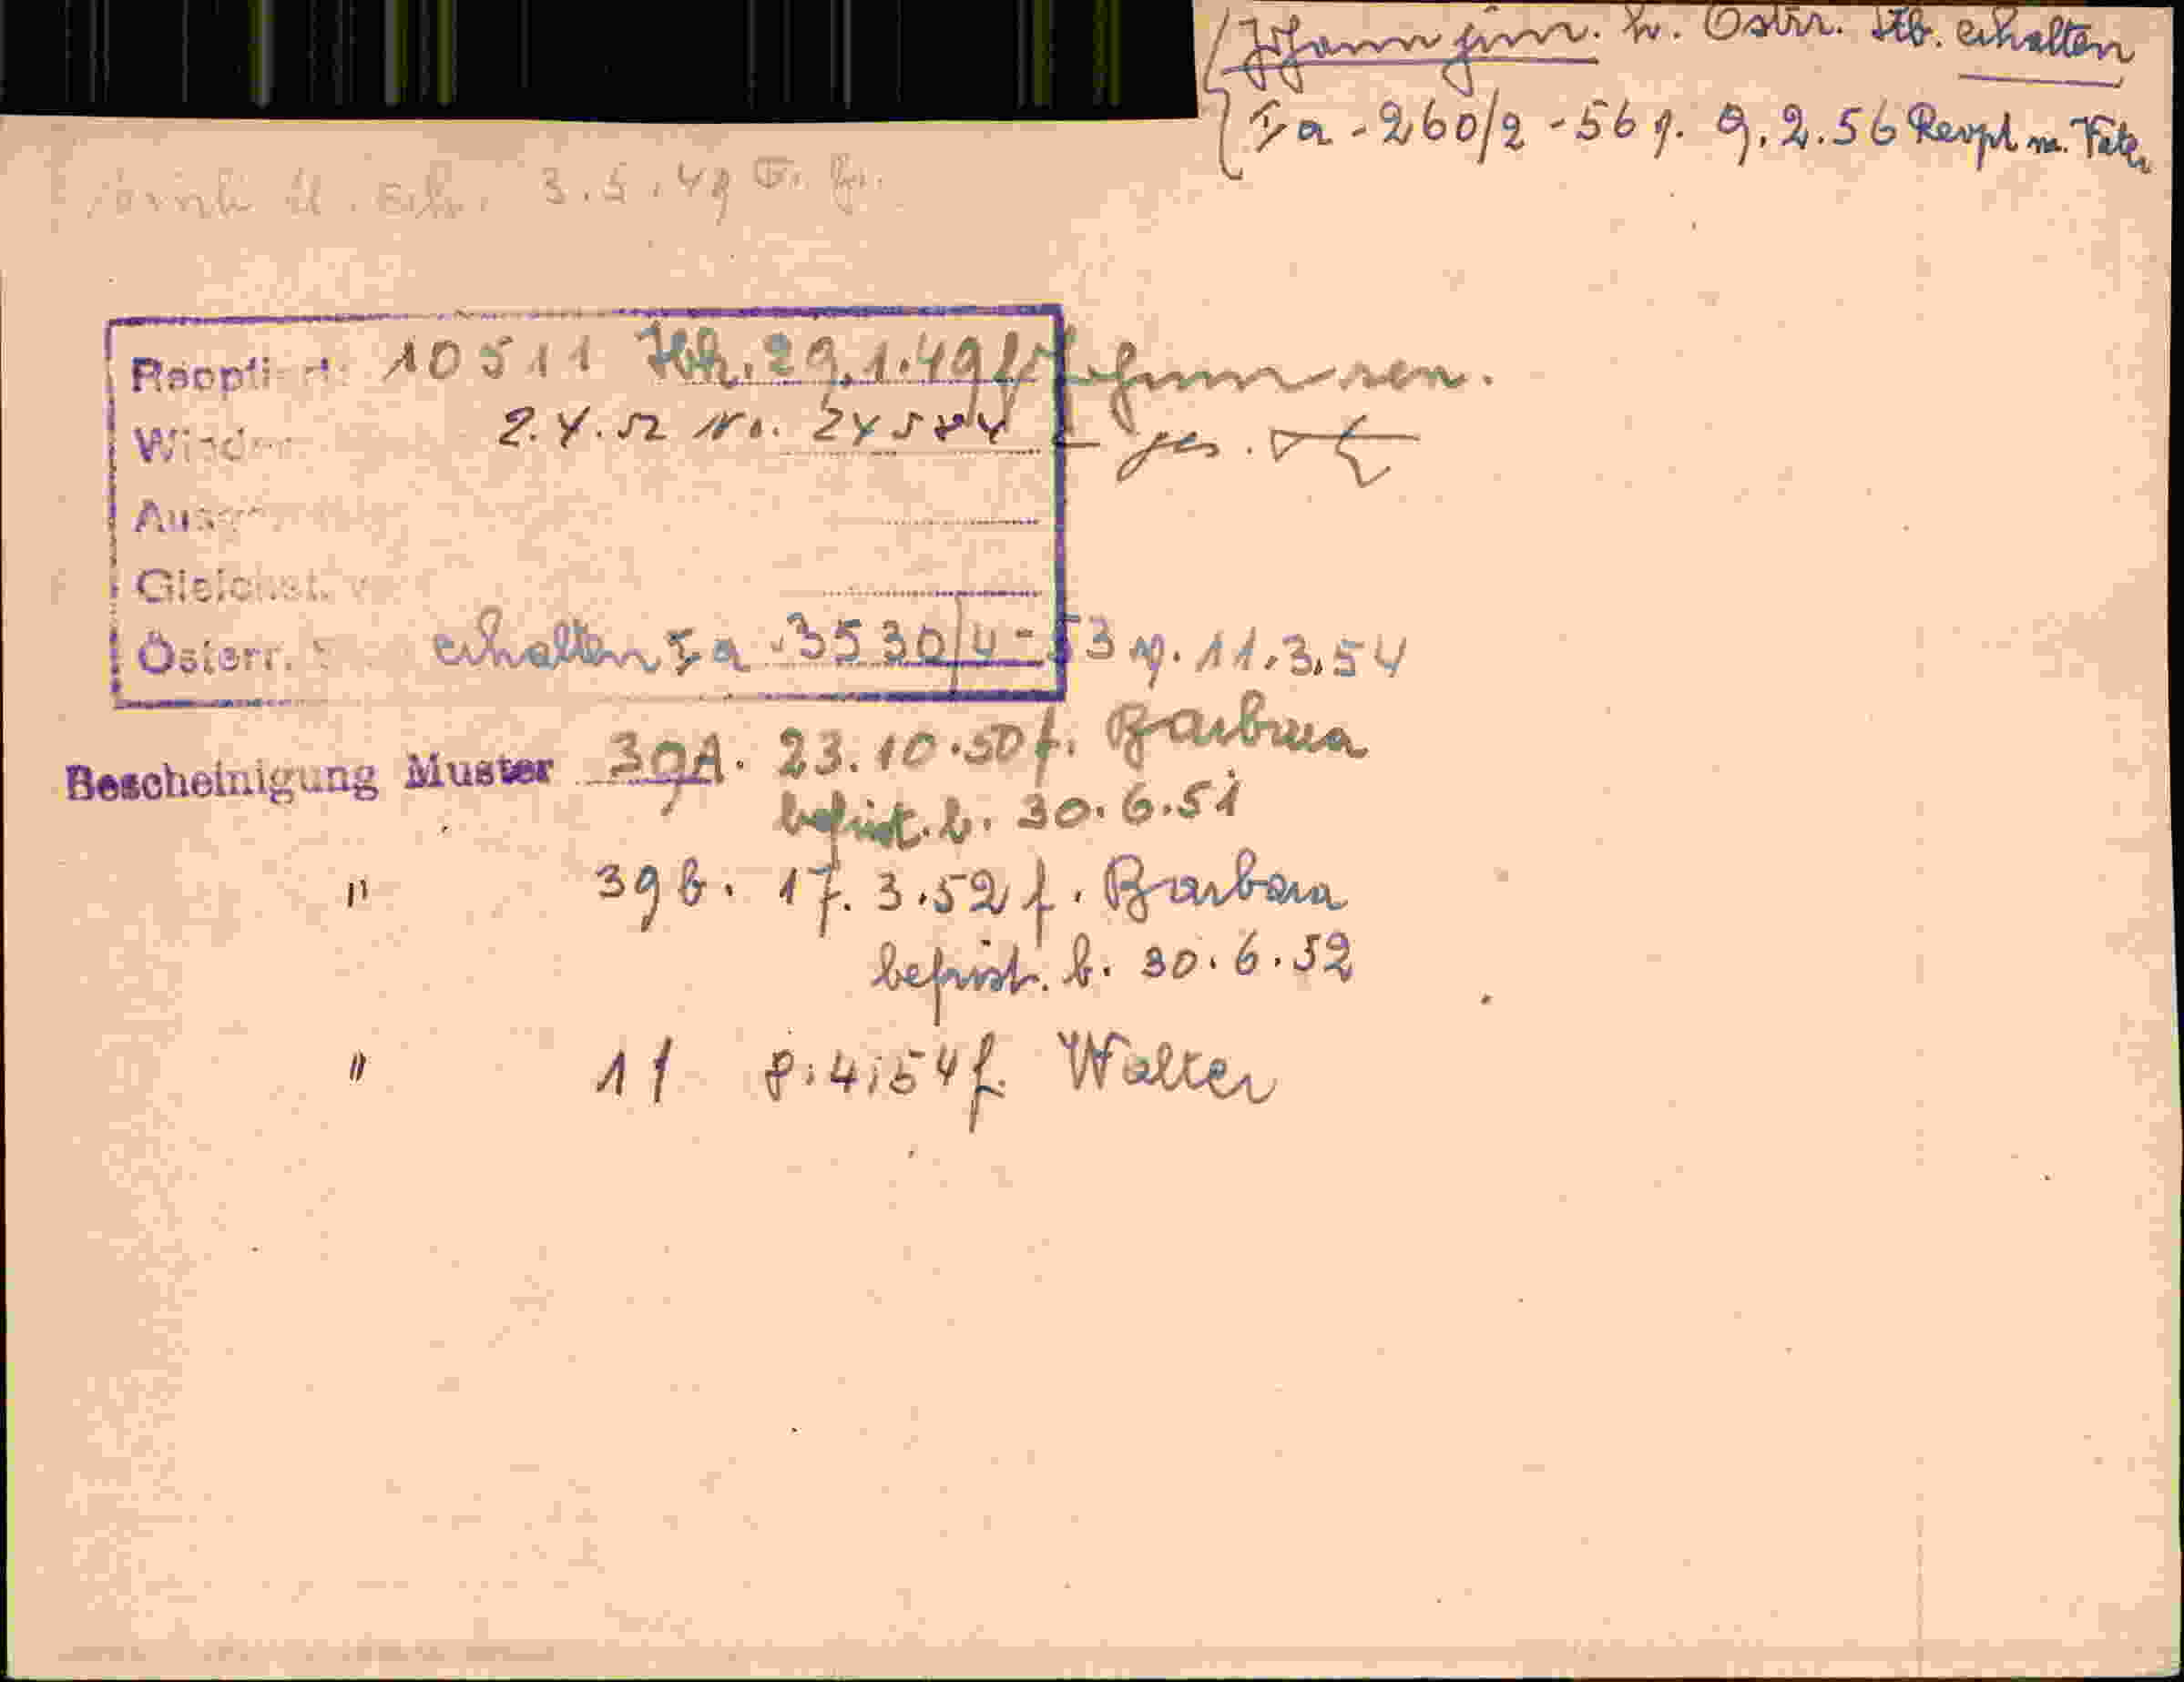 Johann jun. h. Östrr. Stb. erhalten
Ia - 260/2 - 56 v. 9.2.56 Reopt m. Vater
3.5.49
Reoptiert: 10511 29.1.49 f. Johann sen.
Wieder 2.4.52 No. ges.
Ausge
Gleichst. v
Österr. erhalten Ia - 3530/4 - 53 v. 11.3.54
Bescheinigung Muster 39A. 23.10.50 f. Barbara
befrist. b. 30.6.51
" 39b. 17.3.52 f. Barbara
befrist. b. 30.6.52
" 11 8.4.54 f. Walter